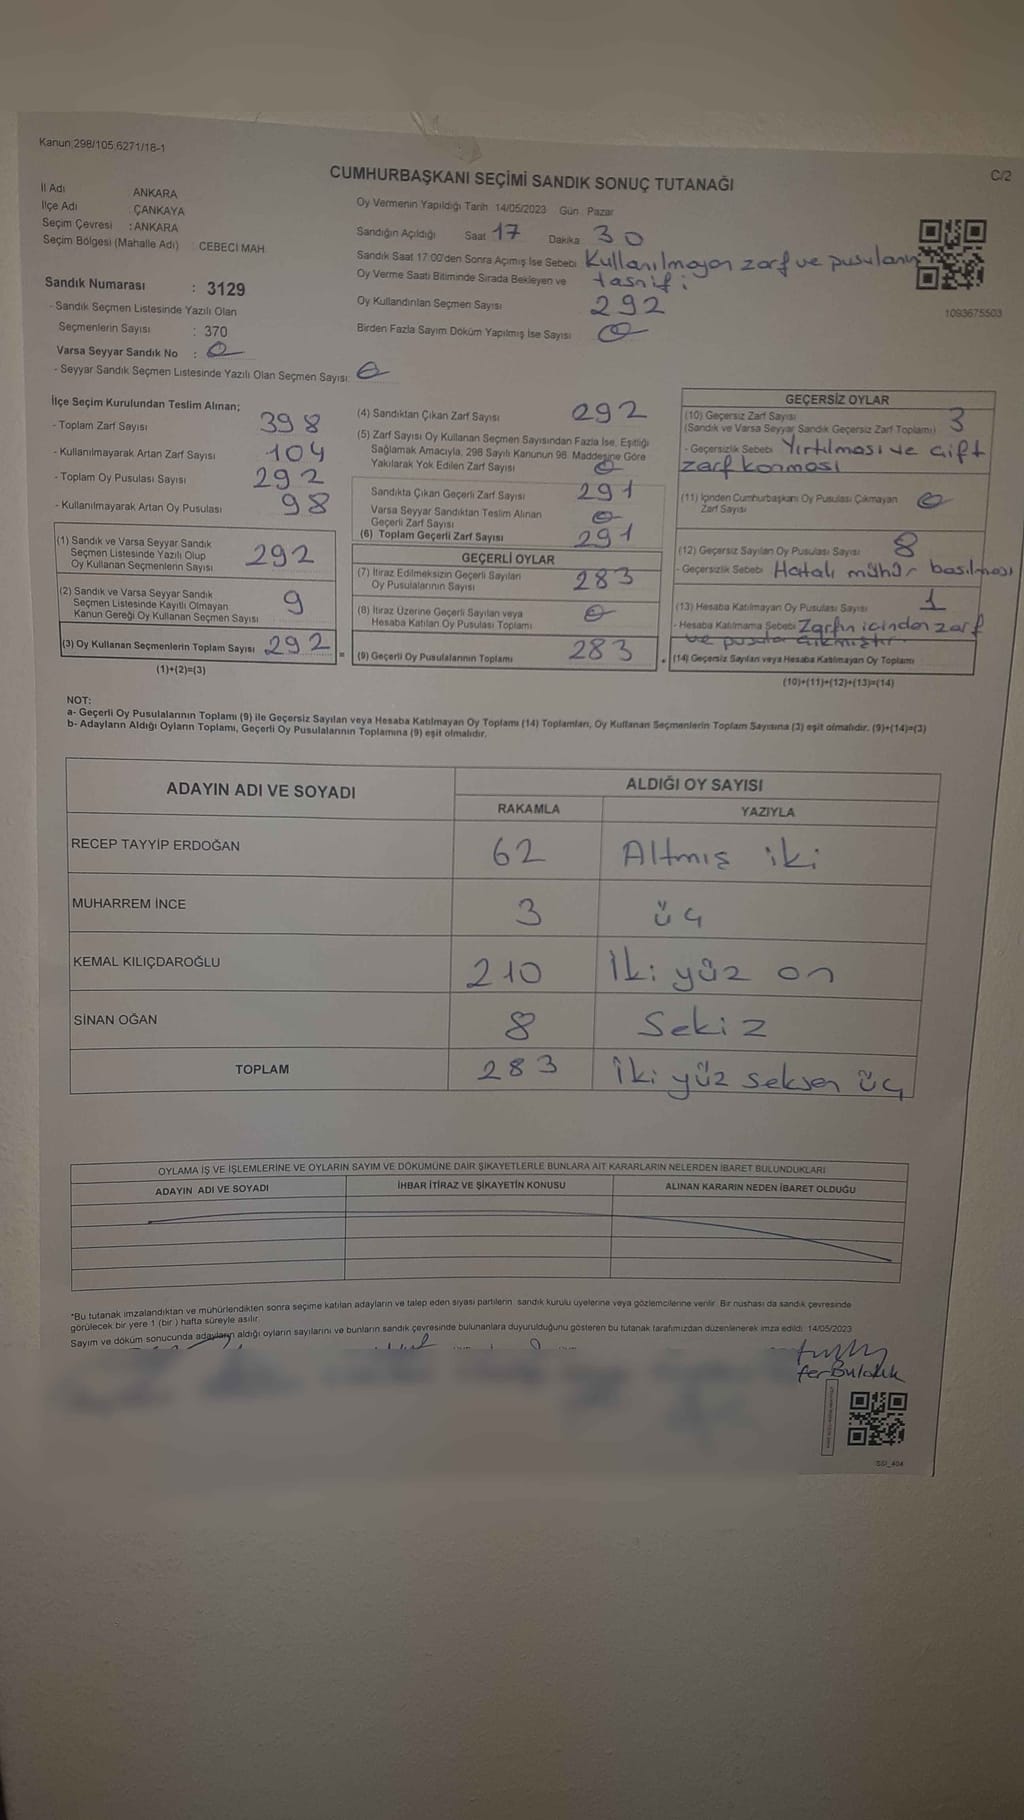 Kanun;298/105,6271/18-1
C/2
CUMHURBAŞKANI SEÇİMİ SANDIK SONUÇ TUTANAĞI
İl Adı ANKARA
İlçe Adı ÇANKAYA
Seçim Çevresi : ANKARA
Seçim Bölgesi (Mahalle Adı) CEBECİ MAH.
Sandık Numarası : 3129
- Sandık Seçmen Listesinde Yazılı Olan
Seçmenlerin Sayısı : 370
Varsa Seyyar Sandık No : 0
- Seyyar Sandık Seçmen Listesinde Yazılı Olan Seçmen Sayısı: 0
Oy Vermenin Yapıldığı Tarih 14/05/2023 Gün Pazar
Sandığın Açıldığı Saat 17 Dakika 30
Sandık Saat 17:00'den Sonra Açımış İse Sebebi Kullanılmayan zarf ve pusulanın
tasnifi
Oy Verme Saati Bitiminde Sırada Bekleyen ve
Oy Kullandırılan Seçmen Sayısı 292
Birden Fazla Sayım Döküm Yapılmış İse Sayısı 0
1093675503
İlçe Seçim Kurulundan Teslim Alınan;
- Toplam Zarf Sayısı 398
- Kullanılmayarak Artan Zarf Sayısı 104
- Toplam Oy Pusulası Sayısı 292
- Kullanılmayarak Artan Oy Pusulası 98
(1) Sandık ve Varsa Seyyar Sandık
Seçmen Listesinde Yazılı Olup
Oy Kullanan Seçmenlerin Sayısı 292
(2) Sandık ve Varsa Seyyar Sandık
Seçmen Listesinde Kayıtlı Olmayan
Kanun Gereği Oy Kullanan Seçmen Sayısı 9
(3) Oy Kullanan Seçmenlerin Toplam Sayısı 292 =
(1)+(2)=(3)
(4) Sandıktan Çıkan Zarf Sayısı 292
(5) Zarf Sayısı Oy Kullanan Seçmen Sayısından Fazla İse, Eşitliği
Sağlamak Amacıyla, 298 Sayılı Kanunun 98. Maddesine Göre
Yakılarak Yok Edilen Zarf Sayısı 0
Sandıkta Çıkan Geçerli Zarf Sayısı 291
Varsa Seyyar Sandıktan Teslim Alınan
Geçerli Zarf Sayısı 0
(6) Toplam Geçerli Zarf Sayısı 291
GEÇERLİ OYLAR
(7) İtiraz Edilmeksizin Geçerli Sayılan
Oy Pusulalarının Sayısı 283
(8) İtiraz Üzerine Geçerli Sayılan veya
Hesaba Katılan Oy Pusulası Toplamı 0
(9) Geçerli Oy Pusulalarının Toplamı 283 +
GEÇERSİZ OYLAR
(10) Geçersiz Zarf Sayısı 3
(Sandık ve Varsa Seyyar Sandık Geçersiz Zarf Toplamı)
- Geçersizlik Sebebi Yırtılması ve çift
zarf konması
(11) İçinden Cumhurbaşkanı Oy Pusulası Çıkmayan 0
Zarf Sayısı
(12) Geçersiz Sayılan Oy Pusulası Sayısı 8
- Geçersizlik Sebebi Hatalı mühür basılması
(13) Hesaba Katılmayan Oy Pusulası Sayısı 1
- Hesaba Katılmama Sebebi Zarfın içinden zarf
ve pusula çıkmıştır.
(14) Geçersiz Sayılan veya Hesaba Katılmayan Oy Toplamı
(10)+(11)+(12)+(13)=(14)
NOT:
a- Geçerli Oy Pusulalarının Toplamı (9) ile Geçersiz Sayılan veya Hesaba Katılmayan Oy Toplamı (14) Toplamları, Oy Kullanan Seçmenlerin Toplam Sayısına (3) eşit olmalıdır. (9)+(14)=(3)
b- Adayların Aldığı Oyların Toplamı, Geçerli Oy Pusulalarının Toplamına (9) eşit olmalıdır.
ADAYIN ADI VE SOYADI ALDIĞI OY SAYISI
RAKAMLA YAZIYLA
RECEP TAYYİP ERDOĞAN 62 Altmış iki
MUHARREM İNCE 3 üç
KEMAL KILIÇDAROĞLU 210 İki yüz on
SİNAN OĞAN 8 Sekiz
TOPLAM 283 İki yüz seksen üç
OYLAMA İŞ VE İŞLEMLERİNE VE OYLARIN SAYIM VE DÖKÜMÜNE DAİR ŞİKAYETLERLE BUNLARA AİT KARARLARIN NELERDEN İBARET BULUNDUKLARI
ADAYIN ADI VE SOYADI İHBAR İTİRAZ VE ŞİKAYETİN KONUSU ALINAN KARARIN NEDEN İBARET OLDUĞU
*Bu tutanak imzalandıktan ve mühürlendikten sonra seçime katılan adayların ve talep eden siyasi partilerin sandık kurulu üyelerine veya gözlemcilerine verilir. Bir nushası da sandık çevresinde
görülecek bir yere 1 (bir) hafta süreyle asılır.
Sayım ve döküm sonucunda adayların aldığı oyların sayılarını ve bunların sandık çevresinde bulunanlara duyurulduğunu gösteren bu tutanak tarafımızdan düzenlenerek imza edildi. 14/05/2023
SSI_404